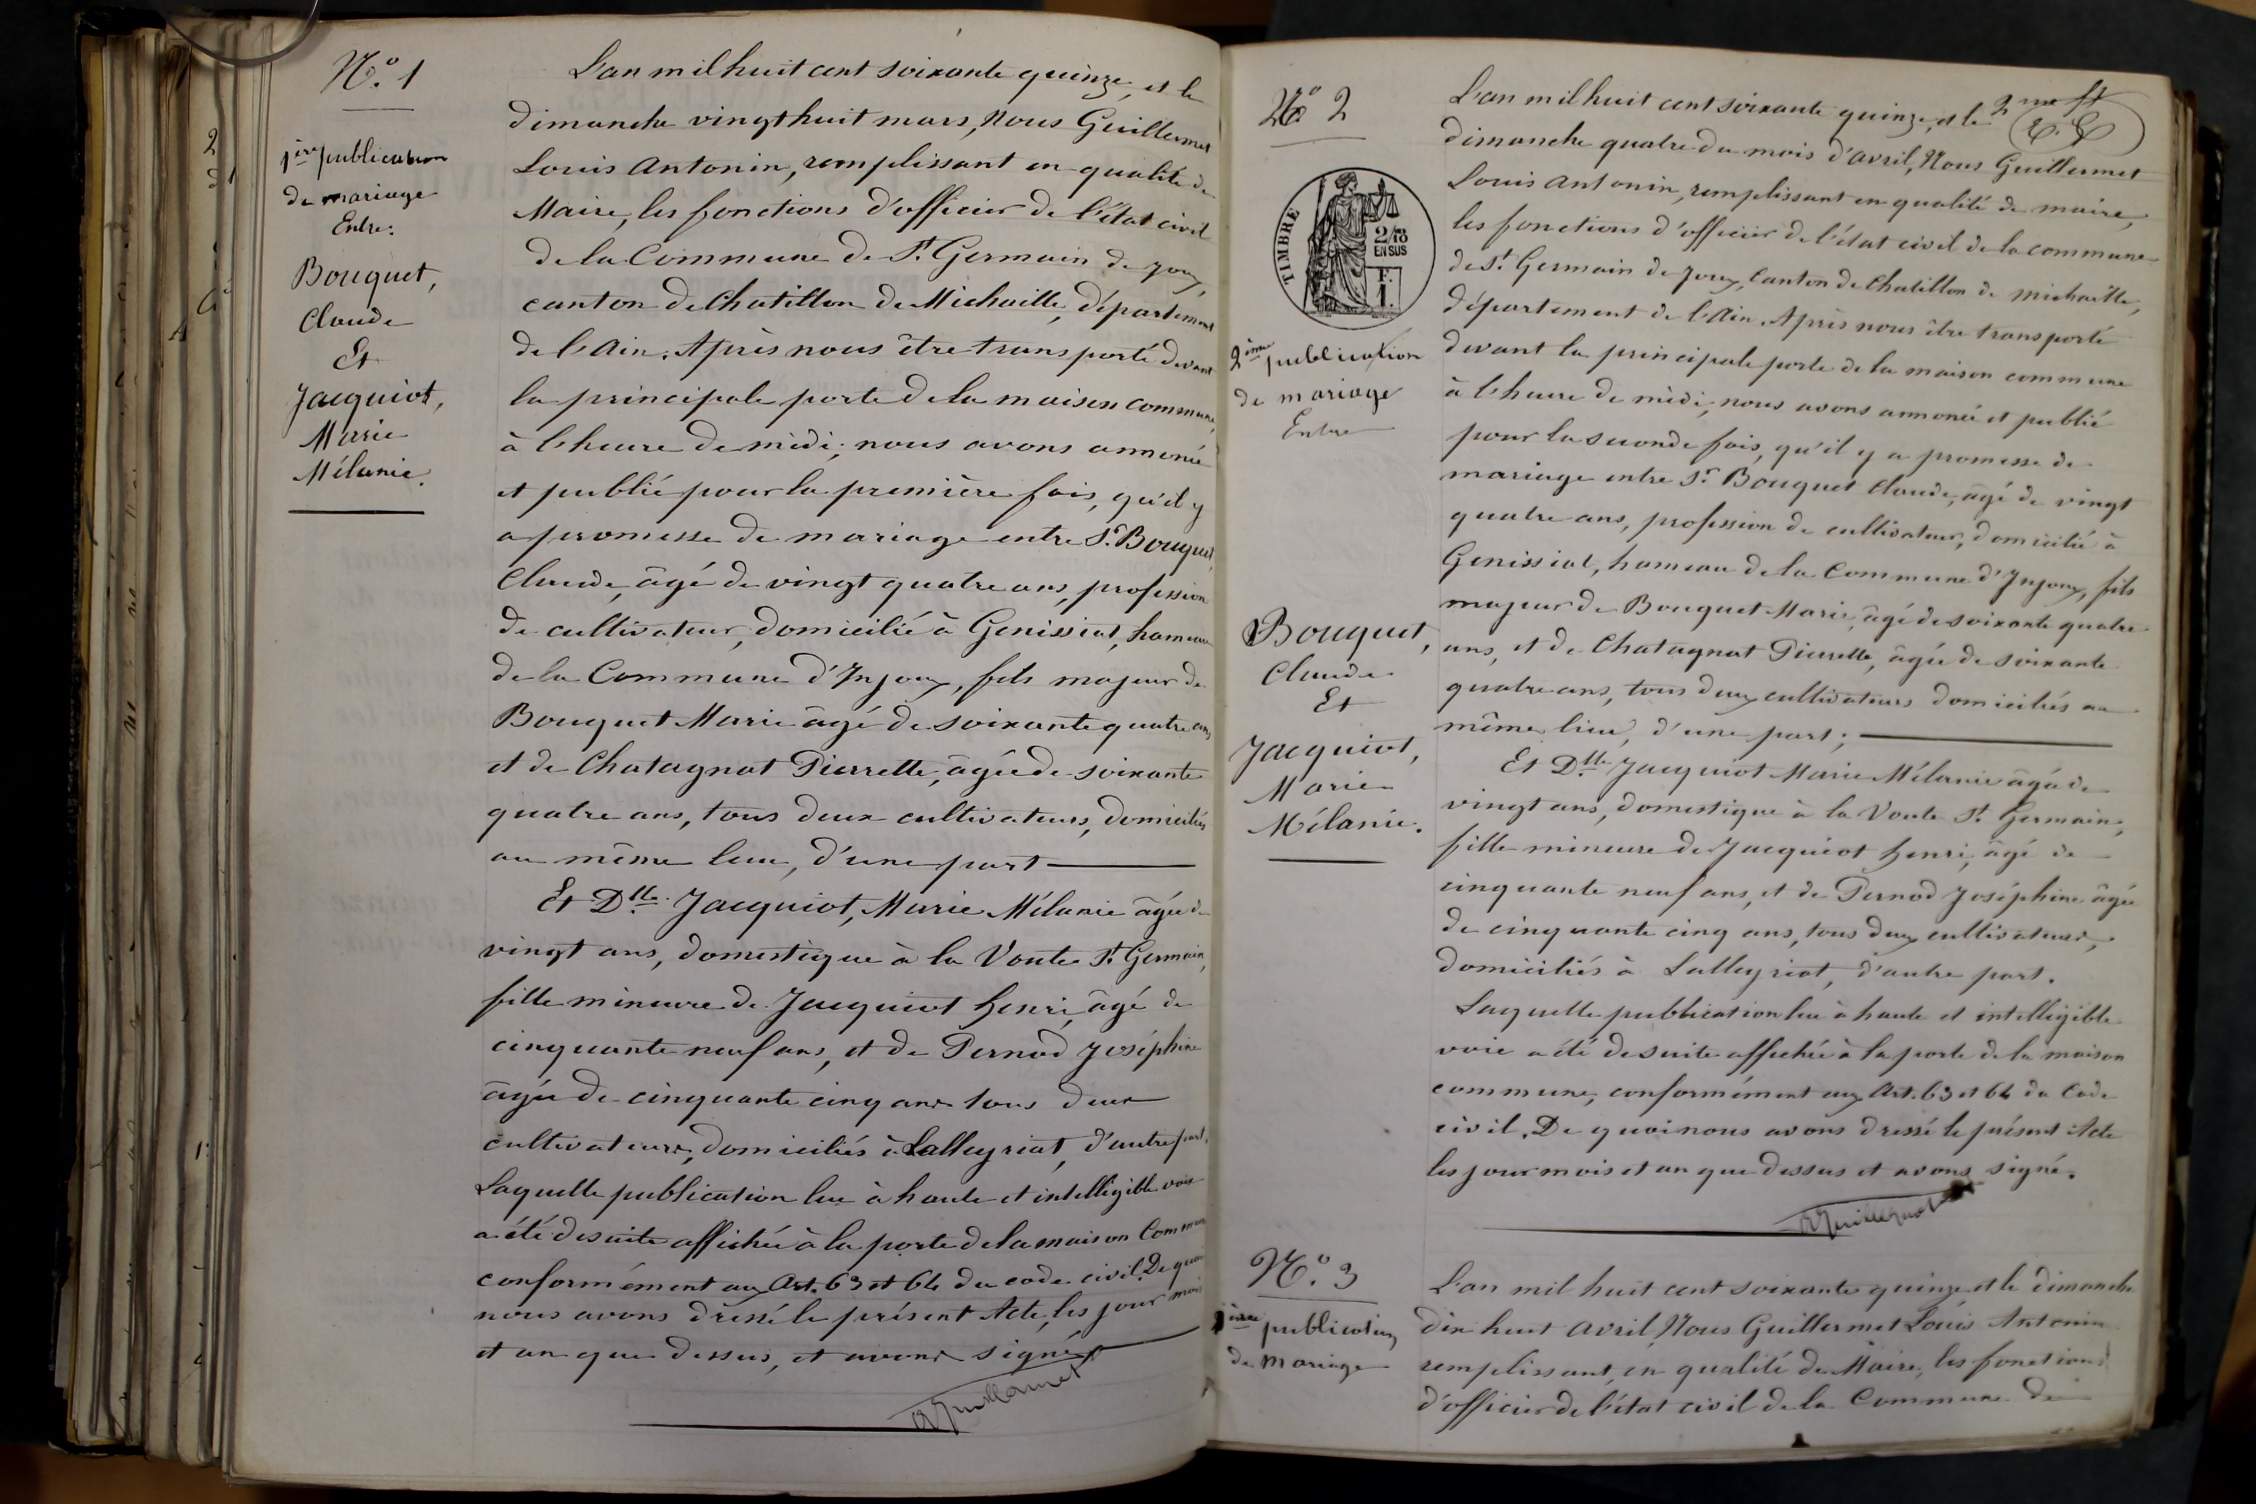 N.o 1
1ère publication
de mariage
Entre:
Bouquet,
Claude
Et
Jacquiot,
Marie
Mélanie.
L'an mil huit cent soixante quinze, et le
dimanche vingt huit mars, Nous Guillermet
Louis Antonin, remplissant en qualité de
Maire, les fonctions d'officier de l'état civil
de la Commune de St. Germain de Joux,
canton de Chatillon de Michaille, département
de l'Ain. Après nous être transporté devant
la principale porte de la maison commune,
à l'heure de midi; nous avons annoncé
et publié pour la première fois, qu'il y
a promesse de mariage entre Sr. Bouquet,
Claude, âgé de vingt quatre ans, profession
de cultivateur, domicilié à Genissiat, hameau
de la Commune d'Injoux, fils majeur de
Bouquet Marie âgé de soixante quatre ans
et de Chatagnat Pierrette, âgée de soixante
quatre ans, tous deux cultivateurs, domiciliés
au même lieu, d'une part
Et Dlle. Jacquiot, Marie Mélanie âgée de
vingt ans, domestique à la Voute St. Germain,
fille mineure de Jacquiot henri, âgé de
cinquante neuf ans, et de Pernod Joséphine
âgée de cinquante cinq ans tous deux
cultivateurs, domiciliés à Lalleyriat, d'autre part.
Laquelle publication lue à haute et intelligible voix
a été de suite affichée à la porte de la maison Commune
conformément aux Art. 63 et 64 du code civil. De quoi
nous avons dressé le présent Acte, les jour mois
et an que dessus, et avons signé
Guillermet
N.o 2
TIMBRE
2/10
EN SUS
F.
1.
2ème publication
de mariage
Entre
Bouquet,
Claude
Et
Jacquiot,
Marie
Mélanie.
2me ft
L'an mil huit cent soixante quinze, et le
dimanche quatre du mois d'avril, Nous Guillermet
Louis Antonin, remplissant en qualité de maire,
les fonctions d'officier de l'état civil de la commune
de St. Germain de Joux, Canton de Chatillon de michaille,
département de l'Ain. Après nous être transporté
devant la principale porte de la maison commune
à l'heure de midi, nous avons annoncé et publié
pour la seconde fois, qu'il y a promesse de
mariage entre Sr. Bouquet Claude, âgé de vingt
quatre ans, profession de cultivateur, domicilié à
Genissiat, hameau de la Commune d'Injoux, fils
majeur de Bouquet Marie, âgé de soixante quatre
ans, et de Chatagnat Pierrette, âgée de soixante
quatre ans, tous deux cultivateurs domiciliés au
même lieu, d'une part;
Et Dlle. Jacquiot Marie Mélanie âgée de
vingt ans, domestique à la Voute St. Germain,
fille mineure de Jacquiot henri, âgé de
cinquante neuf ans, et de Pernod Joséphine âgée
de cinquante cinq ans, tous deux cultivateurs,
domiciliés à Lalleyriat, d'autre part.
Laquelle publication lue à haute et intelligible
voie a été de suite affichée à la porte de la maison
commune, conformément aux Art. 63 et 64 du Code
civil. De quoi nous avons dressé le présent Acte
les jour mois et an que dessus et avons signé.
Guillermet
N.o 3
1ère publication
de mariage
L'an mil huit cent soixante quinze, et le dimanche
dix huit avril, Nous Guillermet Louis Antonin
remplissant, en qualité de Maire, les fonctions
d'officier de l'état civil de la Commune de